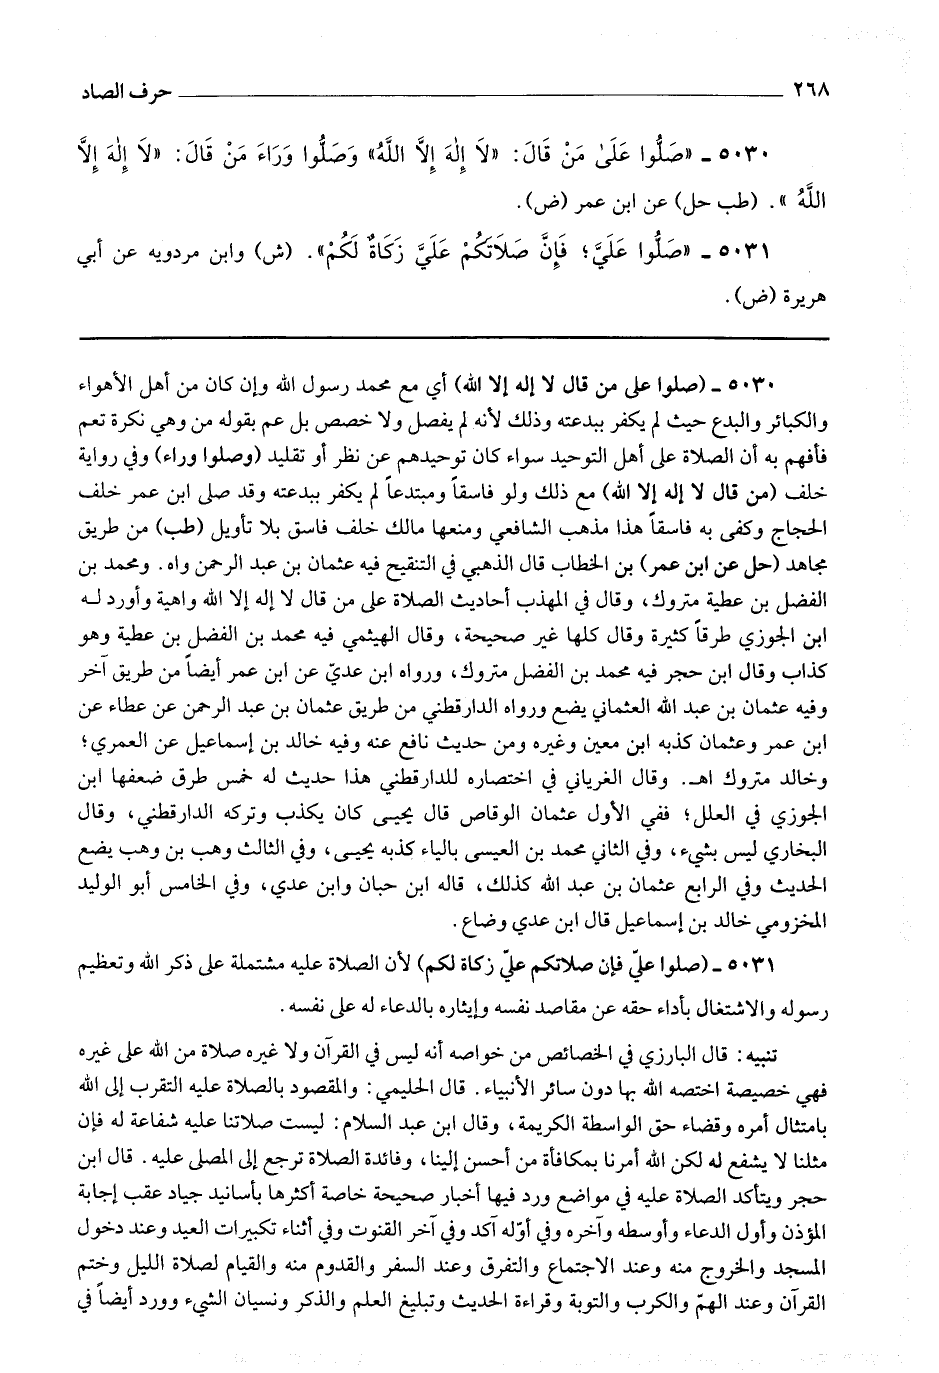 ٢٦٨ حرف الصاد
٥٠٣٠ ـ «صَلُّوا عَلَىٰ مَنْ قَالَ: «لَا إِلٰهَ إِلَّا اللَّهُ» وَصَلُّوا وَرَاءَ مَنْ قَالَ: «لَا إِلٰهَ إِلَّا
اللَّهُ ». (طب حل) عن ابن عمر (ض).
٥٠٣١ ـ «صَلُّوا عَلَيَّ؛ فَإِنَّ صَلَاتَكُمْ عَلَيَّ زَكَاةٌ لَكُمْ». (ش) وابن مردويه عن أبي
هريرة (ض).
٥٠٣٠ ـ (صلوا على من قال لا إله إلا الله) أي مع محمد رسول الله وإن كان من أهل الأهواء
والكبائر والبدع حيث لم يكفر ببدعته وذلك لأنه لم يفصل ولا خصص بل عم بقوله من وهي نكرة تعم
فأفهم به أن الصلاة على أهل التوحيد سواء كان توحيدهم عن نظر أو تقليد (وصلوا وراء) وفي رواية
خلف (من قال لا إله إلا الله) مع ذلك ولو فاسقاً ومبتدعاً لم يكفر ببدعته وقد صلى ابن عمر خلف
الحجاج وكفى به فاسقاً هذا مذهب الشافعي ومنعها مالك خلف فاسق بلا تأويل (طب) من طريق
مجاهد (حل عن ابن عمر) بن الخطاب قال الذهبي في التنقيح فيه عثمان بن عبد الرحمن واه. ومحمد بن
الفضل بن عطية متروك، وقال في المهذب أحاديث الصلاة على من قال لا إله إلا الله واهية وأورد لـه
ابن الجوزي طرقاً كثيرة وقال كلها غير صحيحة، وقال الهيثمي فيه محمد بن الفضل بن عطية وهو
كذاب وقال ابن حجر فيه محمد بن الفضل متروك، ورواه ابن عديّ عن ابن عمر أيضاً من طريق آخر
وفيه عثمان بن عبد الله العثماني يضع ورواه الدارقطني من طريق عثمان بن عبد الرحمن عن عطاء عن
ابن عمر وعثمان كذبه ابن معين وغيره ومن حديث نافع عنه وفيه خالد بن إسماعيل عن العمري؛
وخالد متروك اهـ. وقال الغرياني في اختصاره للدارقطني هذا حديث له خمس طرق ضعفها ابن
الجوزي في العلل؛ ففي الأول عثمان الوقاص قال يحيـى كان يكذب وتركه الدارقطني، وقال
البخاري ليس بشيء، وفي الثاني محمد بن العيسى بالياء كذبه يحيـى، وفي الثالث وهب بن وهب يضع
الحديث وفي الرابع عثمان بن عبد الله كذلك، قاله ابن حبان وابن عدي، وفي الخامس أبو الوليد
المخزومي خالد بن إسماعيل قال ابن عدي وضاع.
٥٠٣١ ـ (صلوا عليّ فإن صلاتكم عليّ زكاة لكم) لأن الصلاة عليه مشتملة على ذكر الله وتعظيم
رسوله والاشتغال بأداء حقه عن مقاصد نفسه وإيثاره بالدعاء له على نفسه.
تنبيه: قال البارزي في الخصائص من خواصه أنه ليس في القرآن ولا غيره صلاة من الله على غيره
فهي خصيصة اختصه الله بها دون سائر الأنبياء. قال الحليمي: والمقصود بالصلاة عليه التقرب إلى الله
بامتثال أمره وقضاء حق الواسطة الكريمة، وقال ابن عبد السلام: ليست صلاتنا عليه شفاعة له فإن
مثلنا لا يشفع له لكن الله أمرنا بمكافأة من أحسن إلينا، وفائدة الصلاة ترجع إلى المصلى عليه. قال ابن
حجر ويتأكد الصلاة عليه في مواضع ورد فيها أخبار صحيحة خاصة أكثرها بأسانيد جياد عقب إجابة
المؤذن وأول الدعاء وأوسطه وآخره وفي أوّله آكد وفي آخر القنوت وفي أثناء تكبيرات العيد وعند دخول
المسجد والخروج منه وعند الاجتماع والتفرق وعند السفر والقدوم منه والقيام لصلاة الليل وختم
القرآن وعند الهمّ والكرب والتوبة وقراءة الحديث وتبليغ العلم والذكر ونسيان الشيء وورد أيضاً في